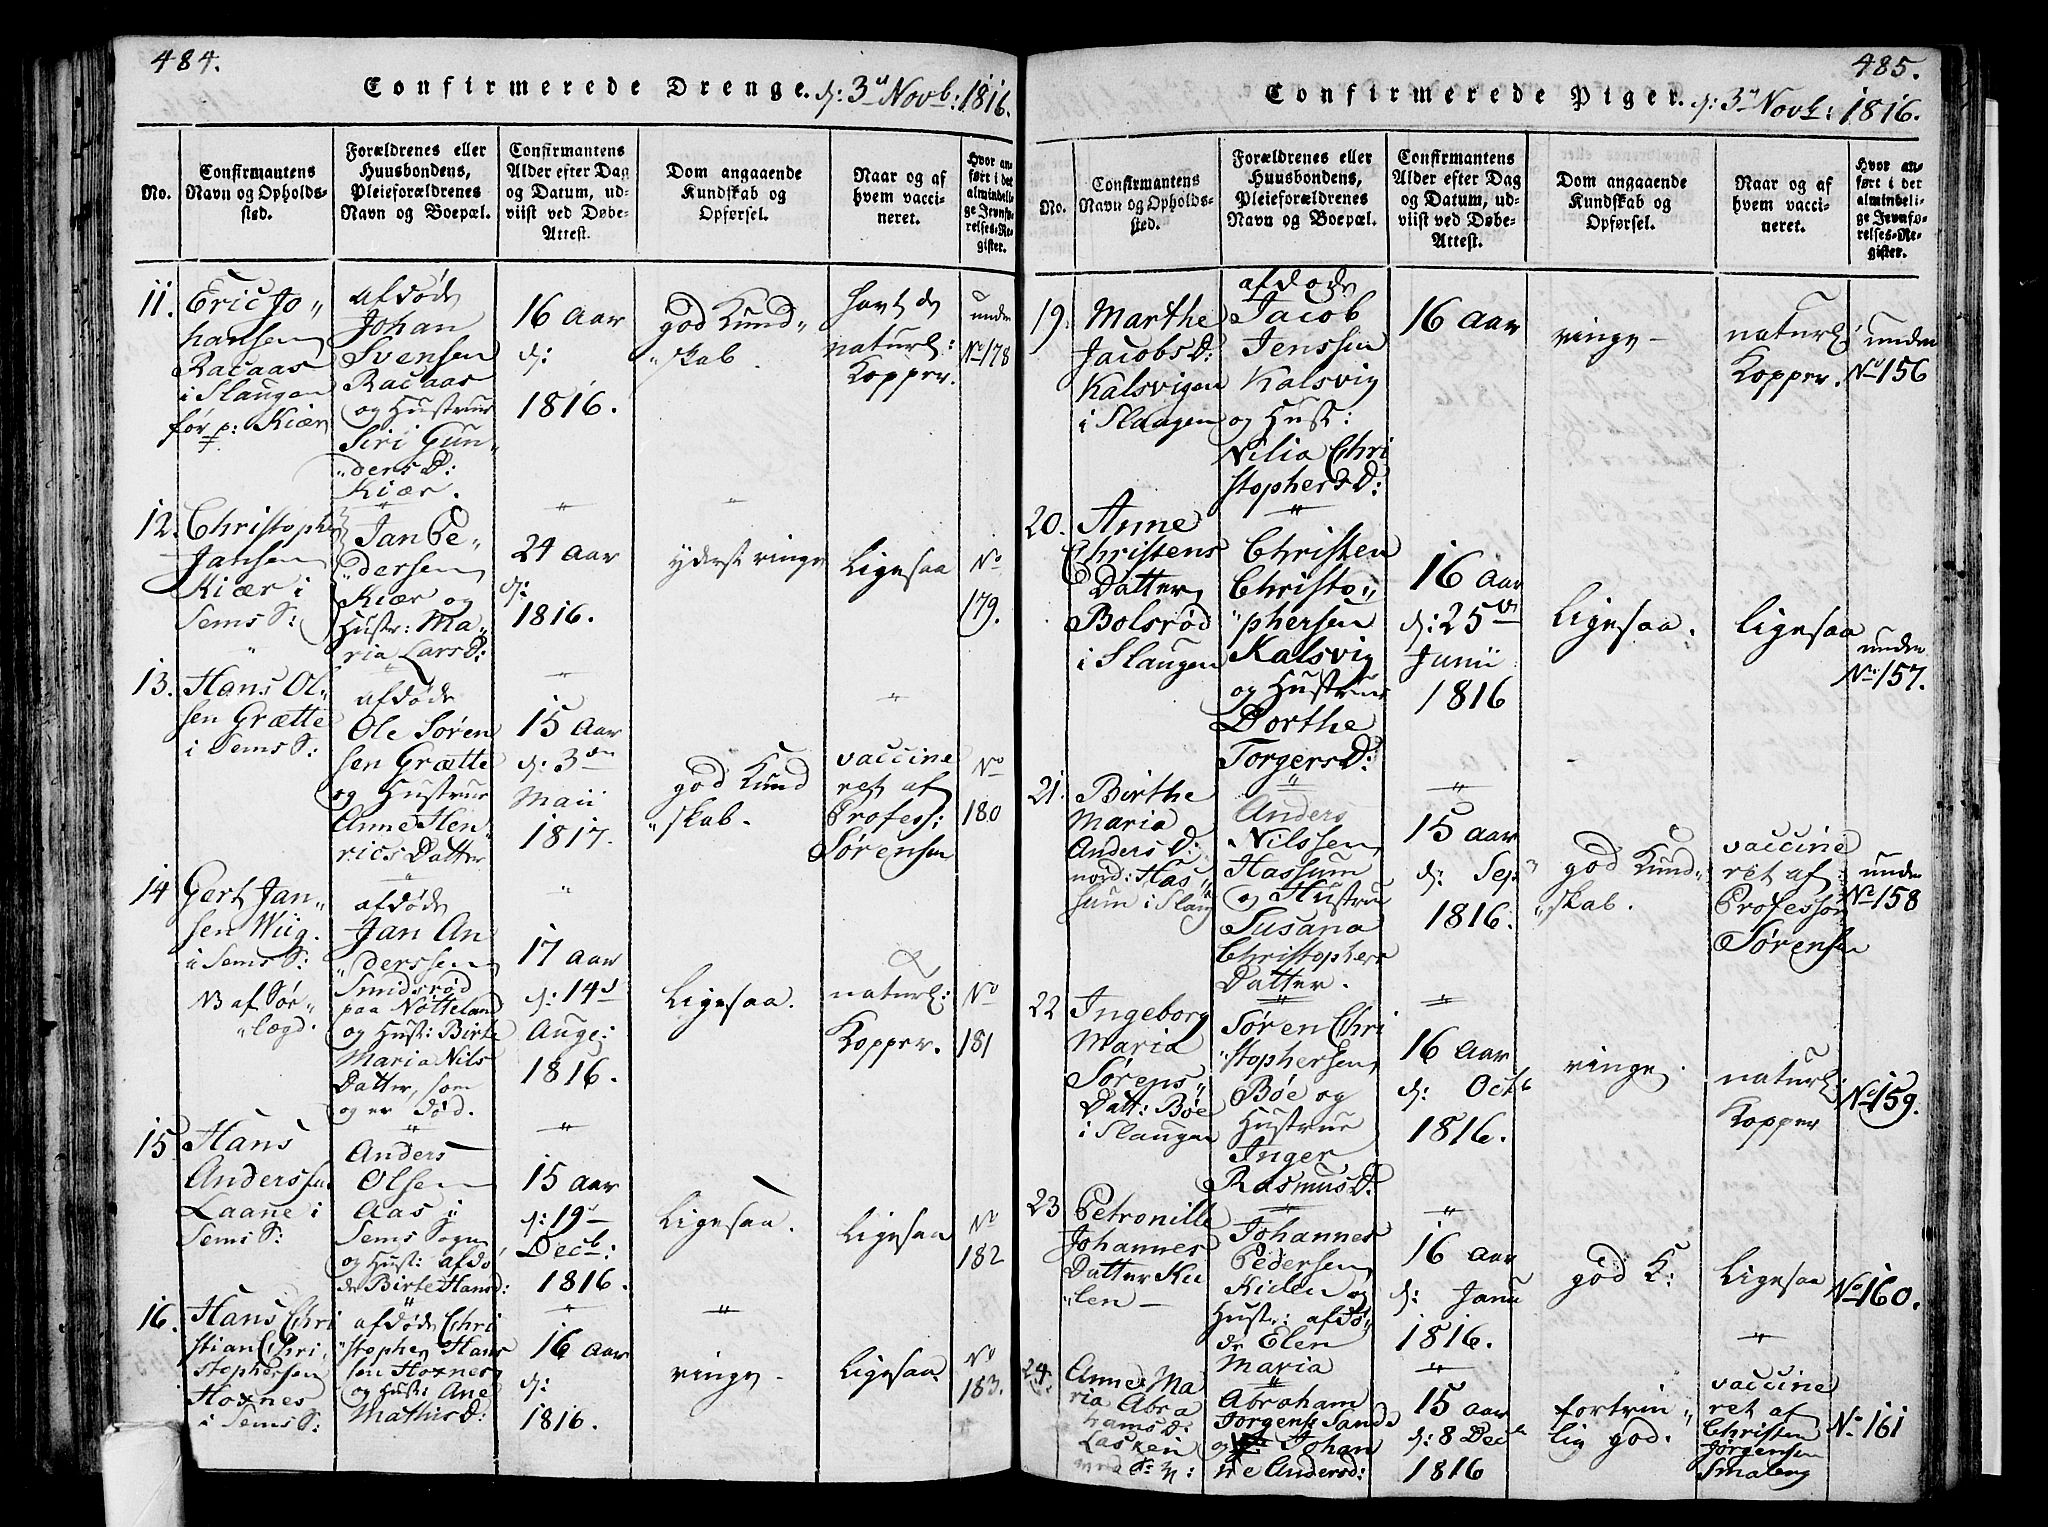 484.
Confirmerede Drenge. d: 3d Novb: 1816.
No.
Confirmantens
Navn og Opholds-
sted.
Forældrenes eller
Huusbondens,
Pleieforældrenes
Navn og Boepæl.
Confirmantens
Alder efter Dag
og Datum, ud-
viist ved Døbe-
Attest.
Dom angaaende
Kundskab og
Opførsel.
Naar og af
hvem vacci-
neret.
Hvor an-
ført i det
almindeli-
ge Jevnfø-
relses-Re-
gister.
11.
Eric Jo-
hansen
Racaas
i Slaugen
før p: Kiær
afdøde
Johan
Svensen
Racaas
og Hustrue
Siri Gun-
ders D:
Kiær.
16 Aar
d:
1816.
god Kund-
skab.
havt de
naturl:
Kopper.
under
No 178
12.
Christopher
Jansen
Kiær i
Sems S:
Jan Pe-
dersen
Kiær og
Hustr: Ma-
ria Lars D:
24 Aar
d:
1816.
yderst ringe
Ligesaa
No
179.
13.
Hans Ol-
sen Grætte
i Sems S:
afdøde
Ole Søren
sen Grætte
og Hustrue
Anne Hen-
rics Datter
15 Aar
d: 3den
Maii
1817.
god Kund
skab.
vaccine
ret af
Profess:
Sørensen
No
180
14
Gert Jan-
sen Wiig.
i Sems S:
NB af Sør-
lægd.
afdøde
Jan An
derssen
Smidsrød
paa Nøtteland
og Hust: Birte
Maria Nils
Datter, som
og er død.
17 Aar
d: 14d
Aug:
1816.
Ligesaa.
naturl:
Kopper.
No
181
15
Hans
Anderssen
Laane i
Sems S:
Anders
Olsen
Aas i
Sems Sogn
og Hust: afdø
de Birte Hansd:
15 Aar
d: 19
Decb:
1816.
Ligesaa.
Ligesaa
No
182
16.
Hans Chri
stian Chri
stophersen
Hoxnes
i Sems S:
afdøde Chri
stopher Hans
sen Hoxnes
og Hust: Ane
Mathis D:
16 Aar
d:
1816.
ringe
Ligesaa.
No
183.
485.
Confirmerede Piger. d: 3d Novb: 1816.
No.
Confirmantens
Navn og Opholds-
sted.
Forældrenes eller
Huusbondens,
Pleieforældrenes
Navn og Boepæl.
Confirmantens
Alder efter Dag
og Datum, ud-
viist ved Døbe-
Attest.
Dom angaaende
Kundskab og
Opførsel.
Naar og af
hvem vacci-
neret.
Hvor an-
ført i det
almindeli-
ge Jevnfø-
relses-Re-
gister.
19.
Marthe
Jacobs D:
Kalsvigen
i Slaagen
afdøde
Jacob
Jenssen
Kalsvig
og Hust:
Nilia Chri
stophers D:
16 Aar
ringe
naturl:
Kopper.
under
No 156
20.
Anne
Christens
Datter
Bolsrød
i Slaugen
Christen
Christo-
phersen
Kalsvig
og Hustrue
Dorthe
Torgers D:
16 Aar
d: 25de
Junii
1816
Ligesaa.
Ligesaa
under
No 157.
21.
Birthe
Maria
Anders D:
nord: Has-
sum i Slaug
Anders
Nilssen
Hassum
og Hustrue
Susana
Christophers
Datter.
15 Aar
d: Sep
1816.
god Kund-
skab.
vaccine
ret af
Professor
Sørensen
under
No 158
22
Ingeborg
Maria
Sørens
Datt: Bøe
i Slaugen
Søren Chri
stophersen
Bøe og
Hustrue
Inger
Rasmus D.
16 Aar
d: Octb
1816.
ringe.
naturl:
Kopper
No 159.
23
Petronille
Johannes
Datter Ki
len
Johannes
Pedersen
Kiilen og
Hustr: afdø
de Elen
Maria
16 Aar
d: Janu
1816.
god K:
Ligesaa
No 160.
24.
Anne Ma
ria Abra
hams D:
Lasken
Abraham
Jorgens Sands
og Johan
ne Andersd:
15 Aar
d: 8 Dec
1816
fortrin-
lig god.
vaccine
ret af
Christen
Jørgensen
Smaberg
No 161